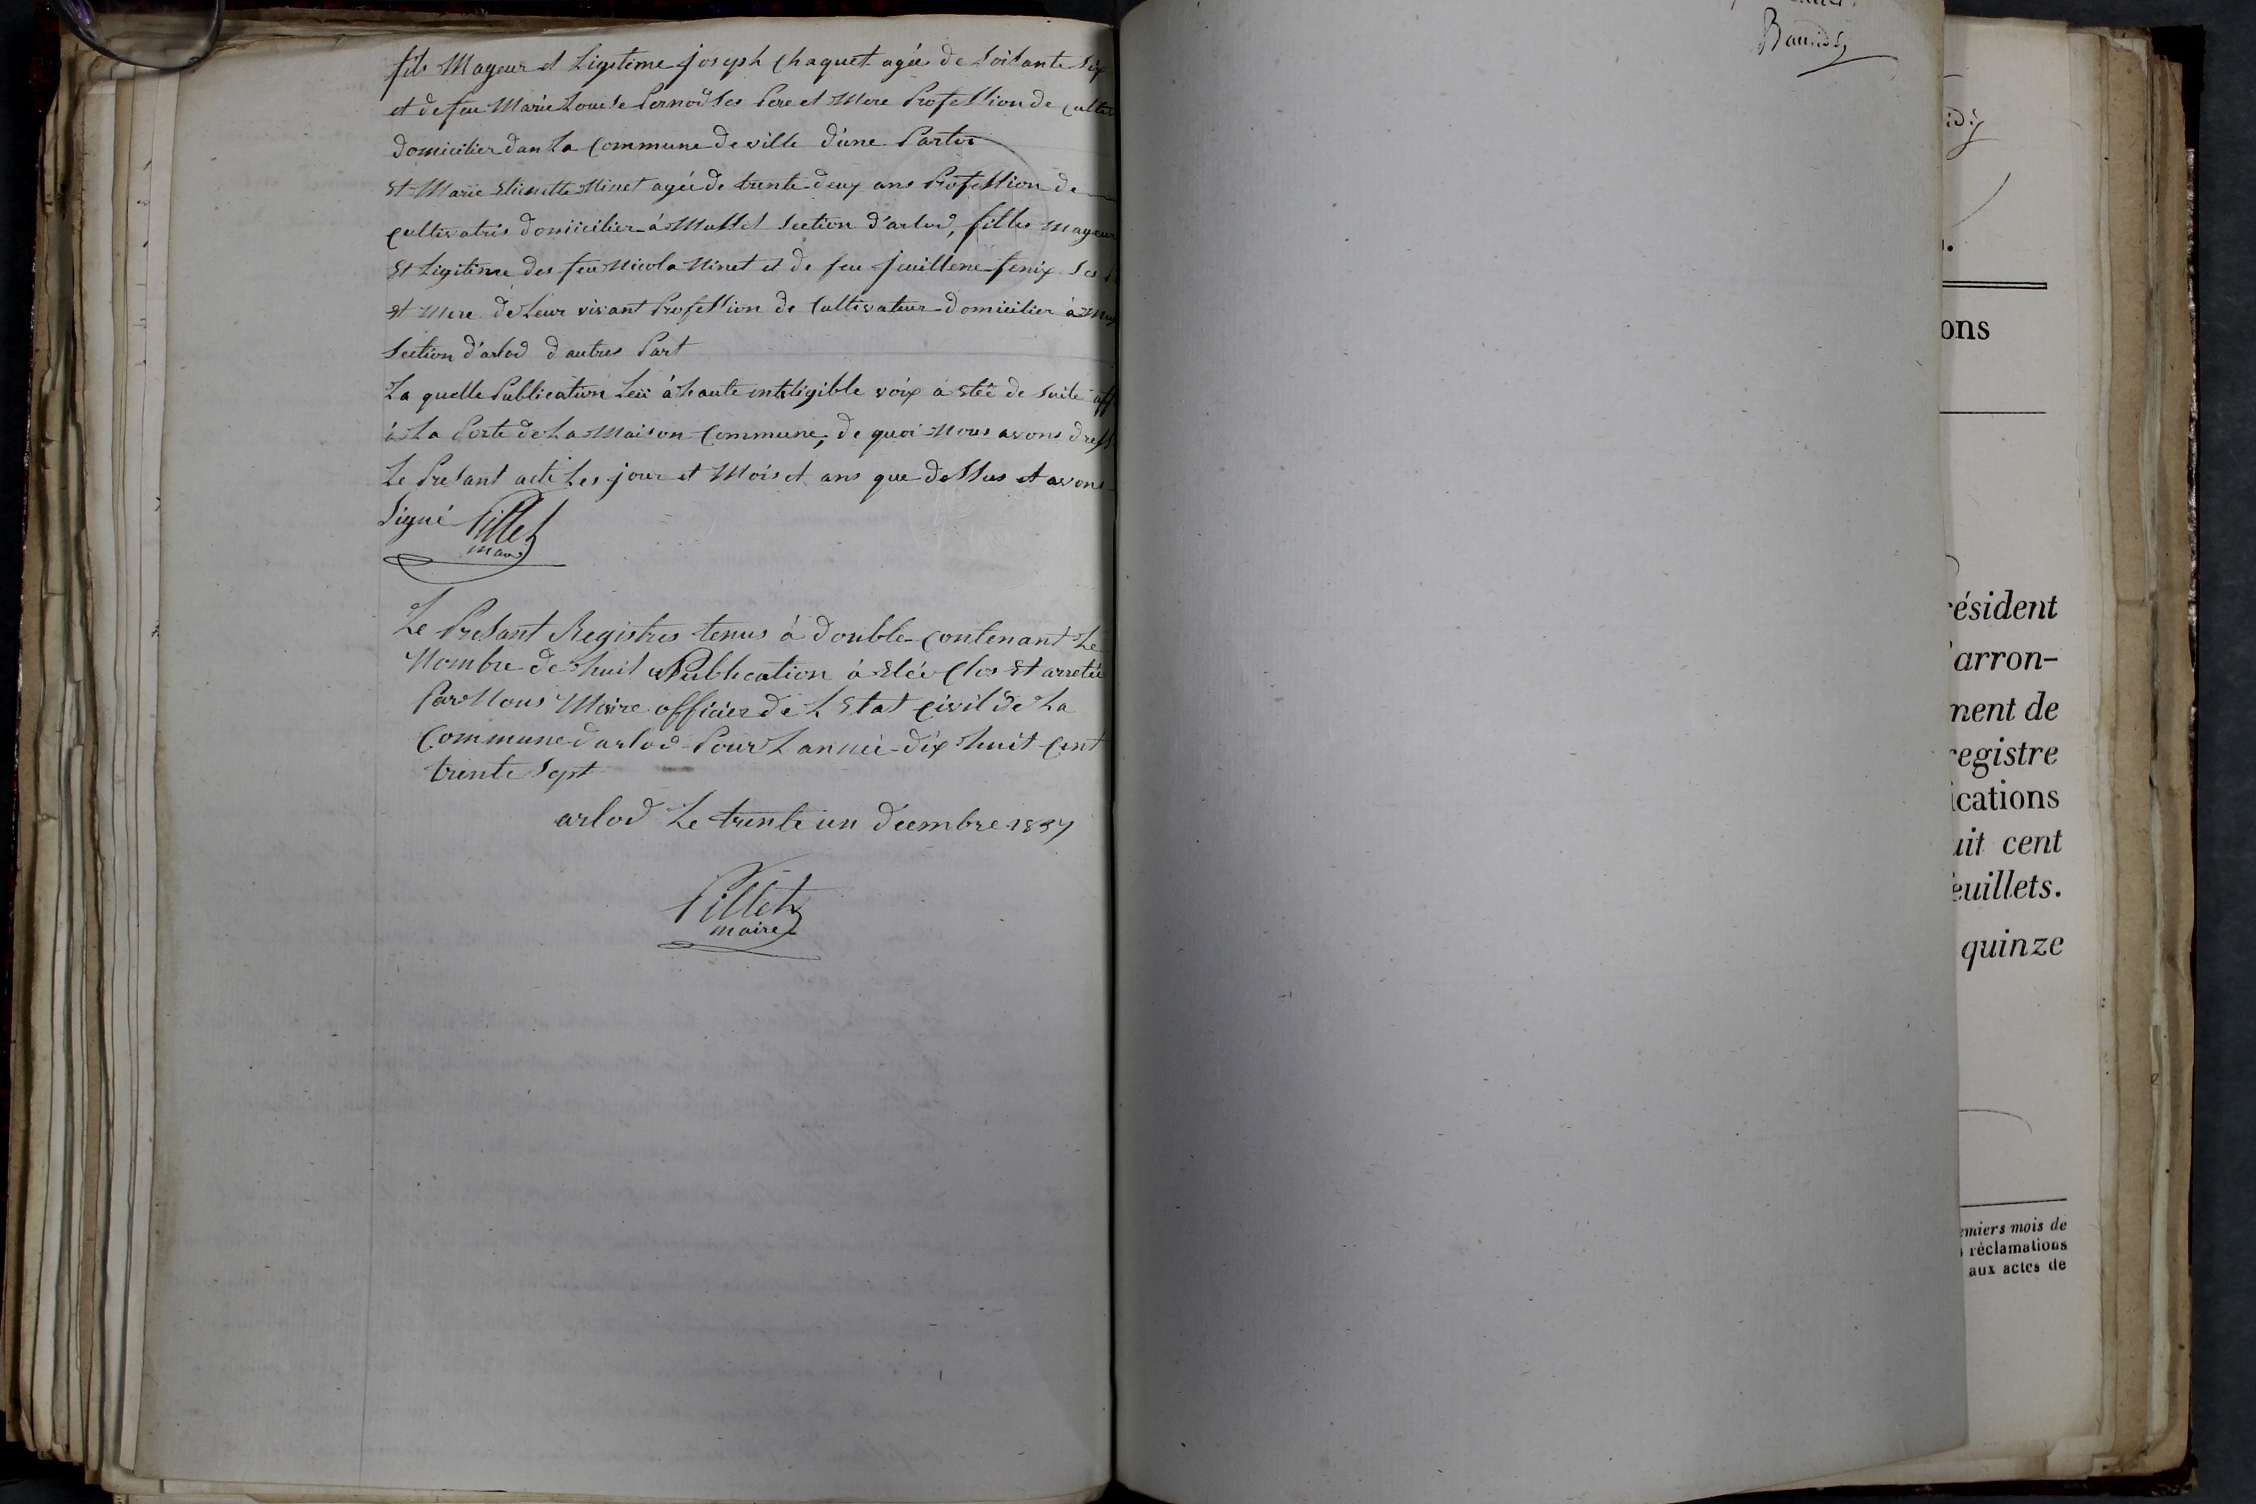 fils Mayeur et Ligetime joseph Chaquet agée de Soisante Six
et de feu Marie Louese Pernod Ses Pere et Mere Profession de Culti
domicilier dan La Commune de ville d'une Partes
Et Marie Etienette Minet agée de trente deux ans Profession de
cultivatris domicilier á Mussel Section d'arlod, filles Mayeur
Et Ligitime des feu Nicola Minet et de feu Fenix Ses
et Mere de Leur vivant Profession de Cultivateur domicilier á Mus
Section d'arlod d'autres Part
La quelle Publication Leü á haute inteligible voix a Etée de Suite aff
á La Porte de La Maison Commune, de quoi Nous avons dress
Le Presant acte Les jour et Mois et ans que dessus et avons
Signé Pillet
maire
Le Presant Registres tenus á double contenant Le
Nombre de huit Publication á Etée Clos Et arretée
Par Nous Maire officier de L Etat Civil de La
Commune d'arlod Pour L année dix huit Cent
trente Sept
arlod Le trente un decembre 1837
Pillet
maire
ons
résident
'arron-
ment de
registre
ications
uit cent
euillets.
quinze
emiers mois de
réclamations
aux actes de